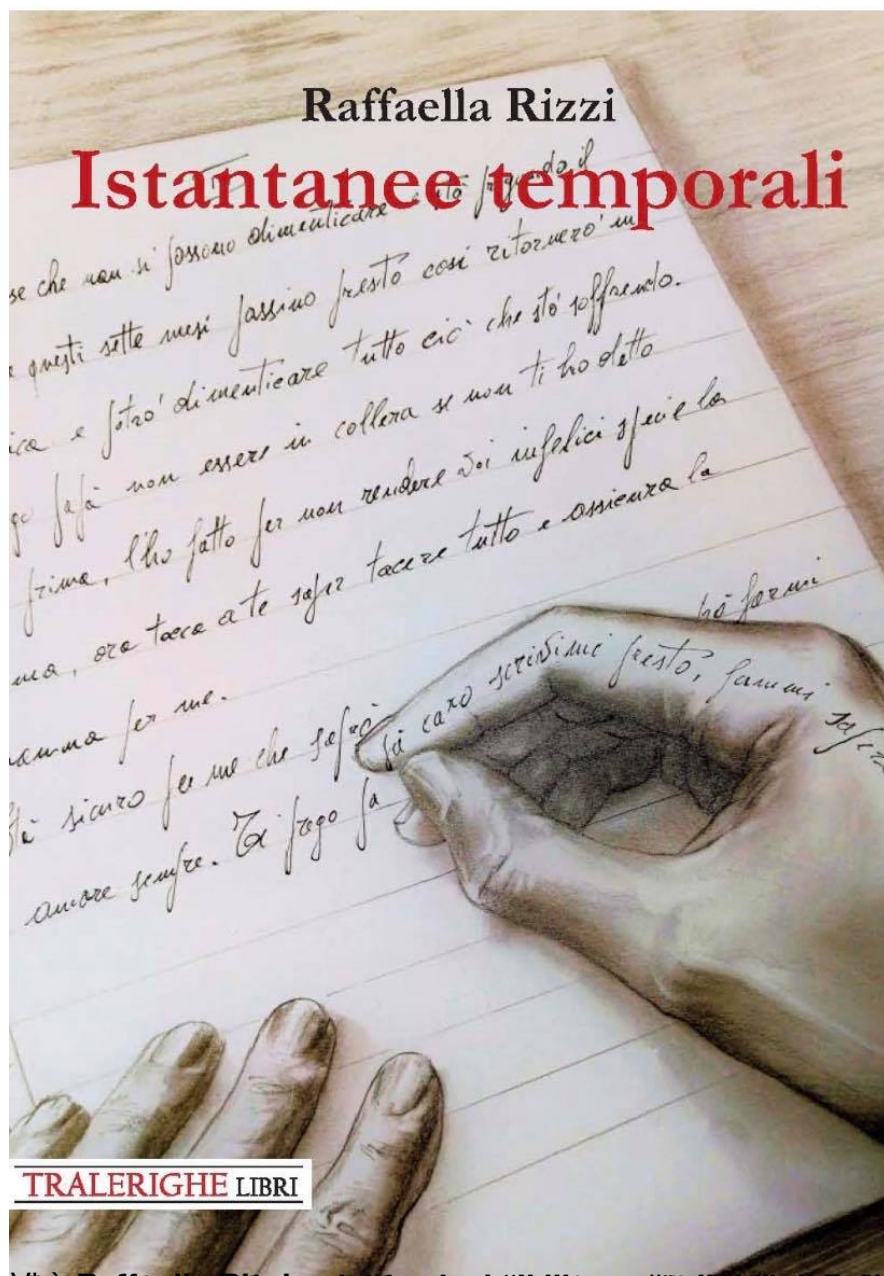 Raffaella Rizzi
Istantanee temporali
se che non si possono dimenticare
questi sette mesi passino presto così ritornerò in
ica e potrò dimenticare tutto ciò che stò soffrendo.
go papà non essere in collera se non ti ho detto
prima, l'ho fatto per non rendere voi infelici specie la
ma, ora tocca a te saper tacere tutto e assicura la
amma per me.
sicuro per me che saprò
pà caro scrivimi presto, fammi saper
amore sempre. Ti prego pa
TRALERIGHE LIBRI